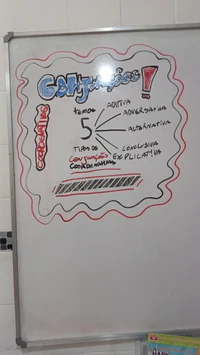 Conjunções!
COORDENATIVAS
TEMOS
5
TIPOS DE
CONJUNÇÕES
COORDENATIVAS
ADITIVA
ADVERSATIVA
ALTERNATIVA
CONCLUSIVA
EXPLICATIVA